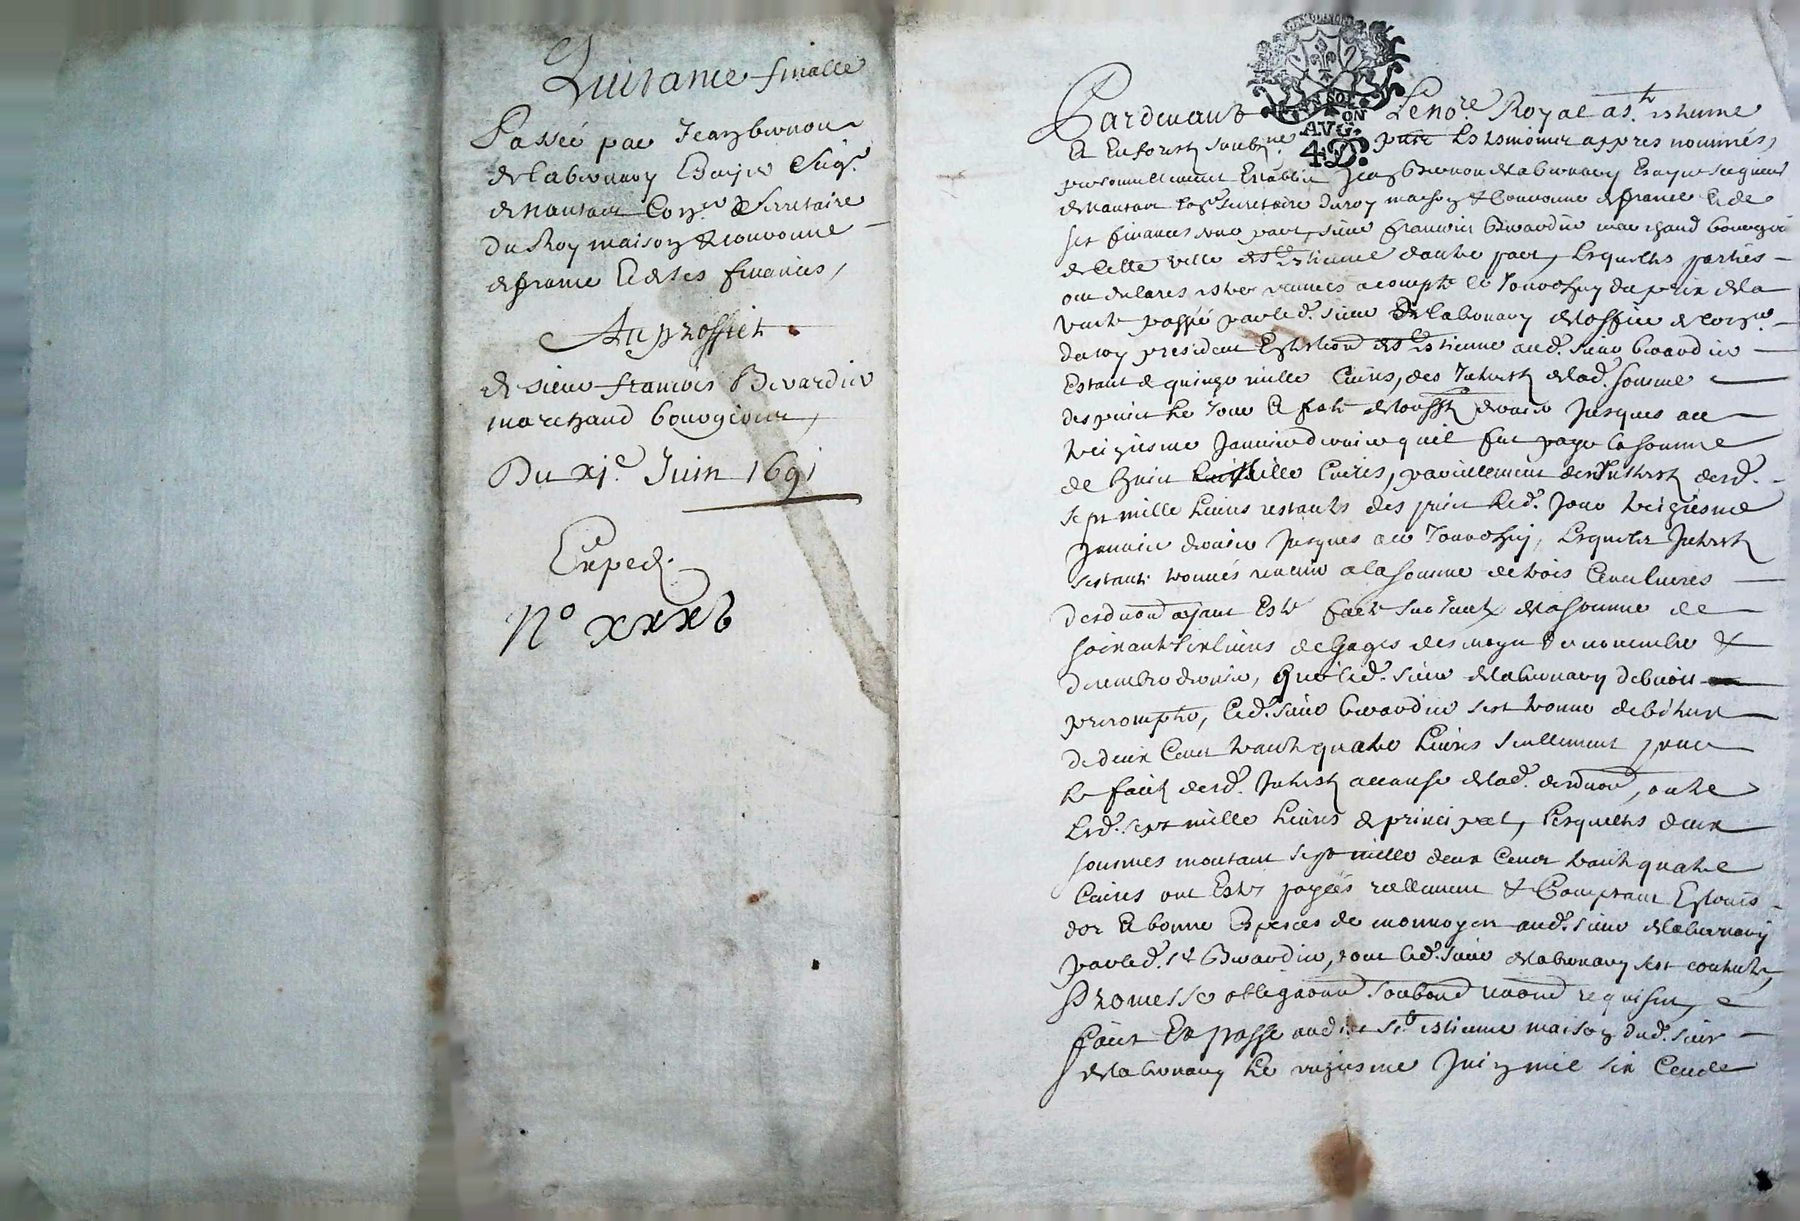 Quitance finalle
Passée par Jean
Escuyer Seigr.
de nantas Conser. Secretaire
du Roy maison & couronne
de france et de ses finances,
Au proffict
de sieur francois Berardier
marchand bourgeois,
Du xje. Juin 1691
Exped.
No xxxb
AVG. ON
4 D.
Pardevant Le nore. Royal a st. estienne
Et En forestz soubzne. les tesmoins appres nommés,
personnellement Estably Jean Escuyer seigneur
de nantas Conser. secretaire du roy maison & Couronne de france Et de
ses finances une part, sieur francois Berardier marchand bourgeois
de cette ville de st. Estienne d'autre part, Lesquelles parties
ont declarés estre venues a compte ce Jourdhuy du prix de la
vente passée par led. sieur de l'office de Conser.
du roy president En l'election de st. Estienne aud. sieur berardier
Estant de quinze mille livres, des Interestz de lad. somme
despuis le Jour Et feste de toussaintz dernier Jusques au
treiziesme Janvier dernier quil fut payé la somme
de huict mille livres, pareillement des Interestz desd.
sept mille livres restants despuis led. Jour treiziesme
Janvier dernier Jusques a ce Jourdhuy, Lesquels Interestz
sestants trouvés revenir a la somme de trois Cents livres
deduction ayant Esté faite sur Iceux de la somme de
soixante six livres de gages des moys de novembre &
decembre dernier, que led. sieur debvoit
precompter, Led. sieur berardier sest trouvé debiteur
de deux Cent trante quatre livres seullement pour
le faict desd. Interestz a cause de lad. deduction, outre
Lesd. sept mille livres de principal, Lesquelles deux
sommes montant sept mille deux Cents trante quatre
livres ont Estés payées reellement & Comptant En louis
d'or Et bonne Especes de monnoyes aud. sieur
par led. sr. Berardier, dont led. sieur sest contenté,
Promesse obligaond soubond requises,
faict Et passé audict st. estienne maison dud. sieur
le unziesme Juin mil six Cents